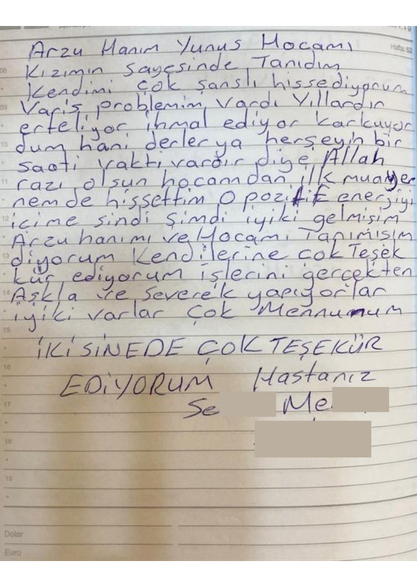 Arzu Hanım Yunus Hocamı
Kızımın sayesinde Tanıdım
Kendimi çok şanslı hissediyorum
Varis problemim vardı Yıllardır
erteliyor ihmal ediyor Korkuyor
dum hani derler ya herşeyin bir
saati vakti vardır diye Allah
razı olsun hocamdan ilk muayer
nemde hissettim o pozitif enerjiyi
içime sindi Şimdi iyiki gelmişim
Arzu hanımı ve Hocamı Tanımışım
diyorum Kendilerine çok Teşek
kür ediyorum işlerini gerçekten
Aşkla ve severek yapıyorlar
iyiki varlar Çok Memnunum
İKİSİNEDE ÇOK TEŞEKÜR
EDİYORUM Hastanız
Se Me
Dolar
Euro